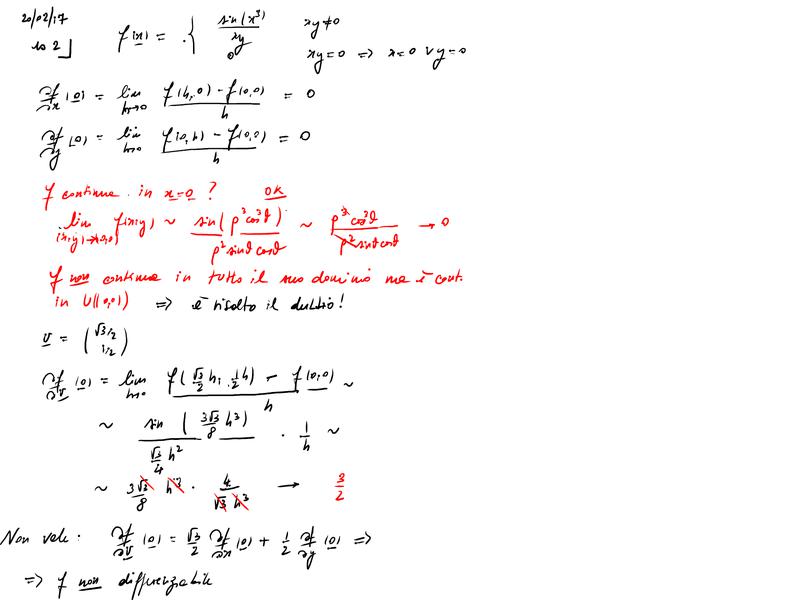 20/02/17
f(x) = { sin(x³)/xy   xy≠0
es 2]   0   xy=0 => x=0 ∨ y=0
∂f/∂x (0) = lim h→0 f(h,0) - f(0,0) / h = 0
∂f/∂y (0) = lim h→0 f(0,h) - f(0,0) / h = 0
f continua in x=0 ?   OK
lim (x,y)→(0,0) f(x,y) ~ sin(ρ³cos³ϑ) / ρ²sinϑcosϑ ~ ρ³cos³ϑ / ρ²sinϑcosϑ → 0
f non continua in tutto il suo dominio ma è cont.
in U((0,0)) => è risolto il dubbio!
v = (√3/2 1/2)
∂f/∂v (0) = lim h→0 f(√3/2 h, 1/2 h) - f(0,0) / h ~
~ sin (3√3/8 h³) / √3/4 h² · 1/h ~
~ 3√3/8 h³ · 4/√3 h³ → 3/2
Non vale: ∂f/∂v (0) = √3/2 ∂f/∂x (0) + 1/2 ∂f/∂y (0) =>
=> f non differenziabile